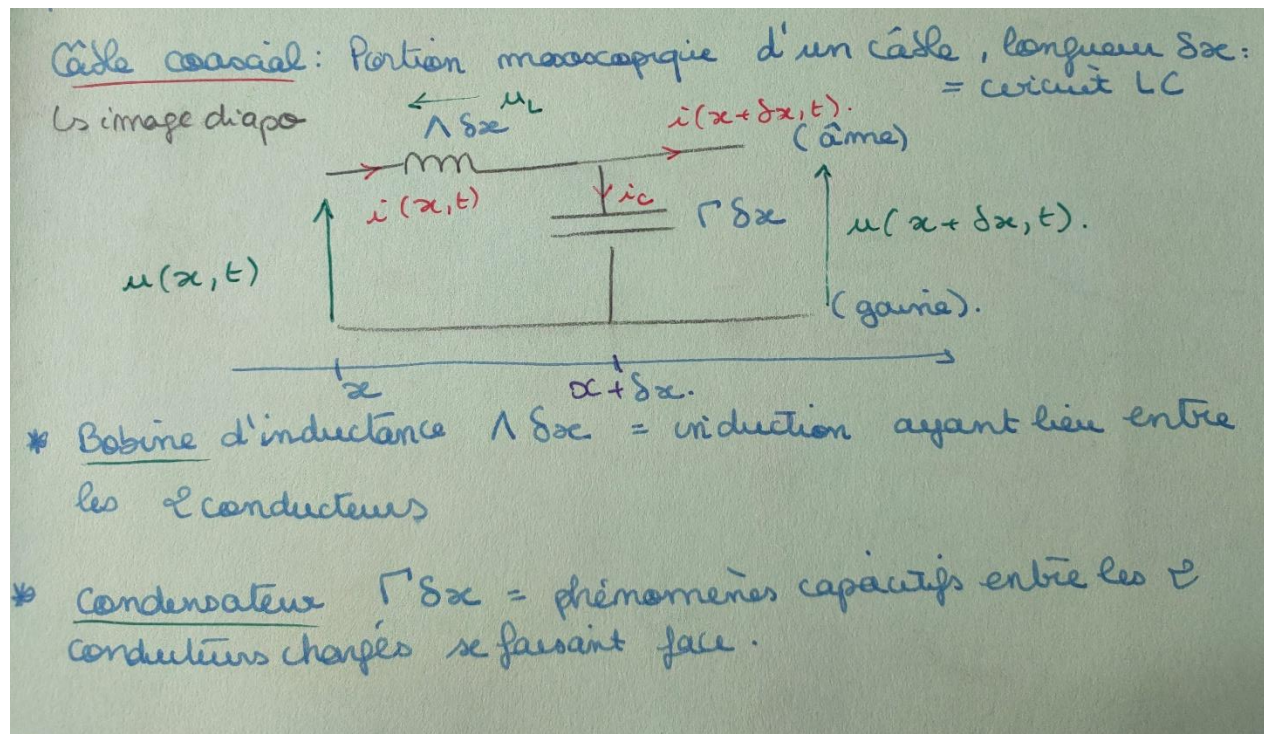 Câble coaxial : Portion mesoscopique d'un câble, longueur δx :
= circuit LC
↳ image diapo
u_L
Λ δx
i(x+δx,t).
(âme)
i(x,t)
i_c
Γ δx
u(x+δx,t).
u(x,t)
(gaine).
x
x+δx.
* Bobine d'inductance Λ δx = induction ayant lieu entre
les 2 conducteurs
* Condensateur Γ δx = phénomènes capacitifs entre les 2
conducteurs chargés se faisant face.